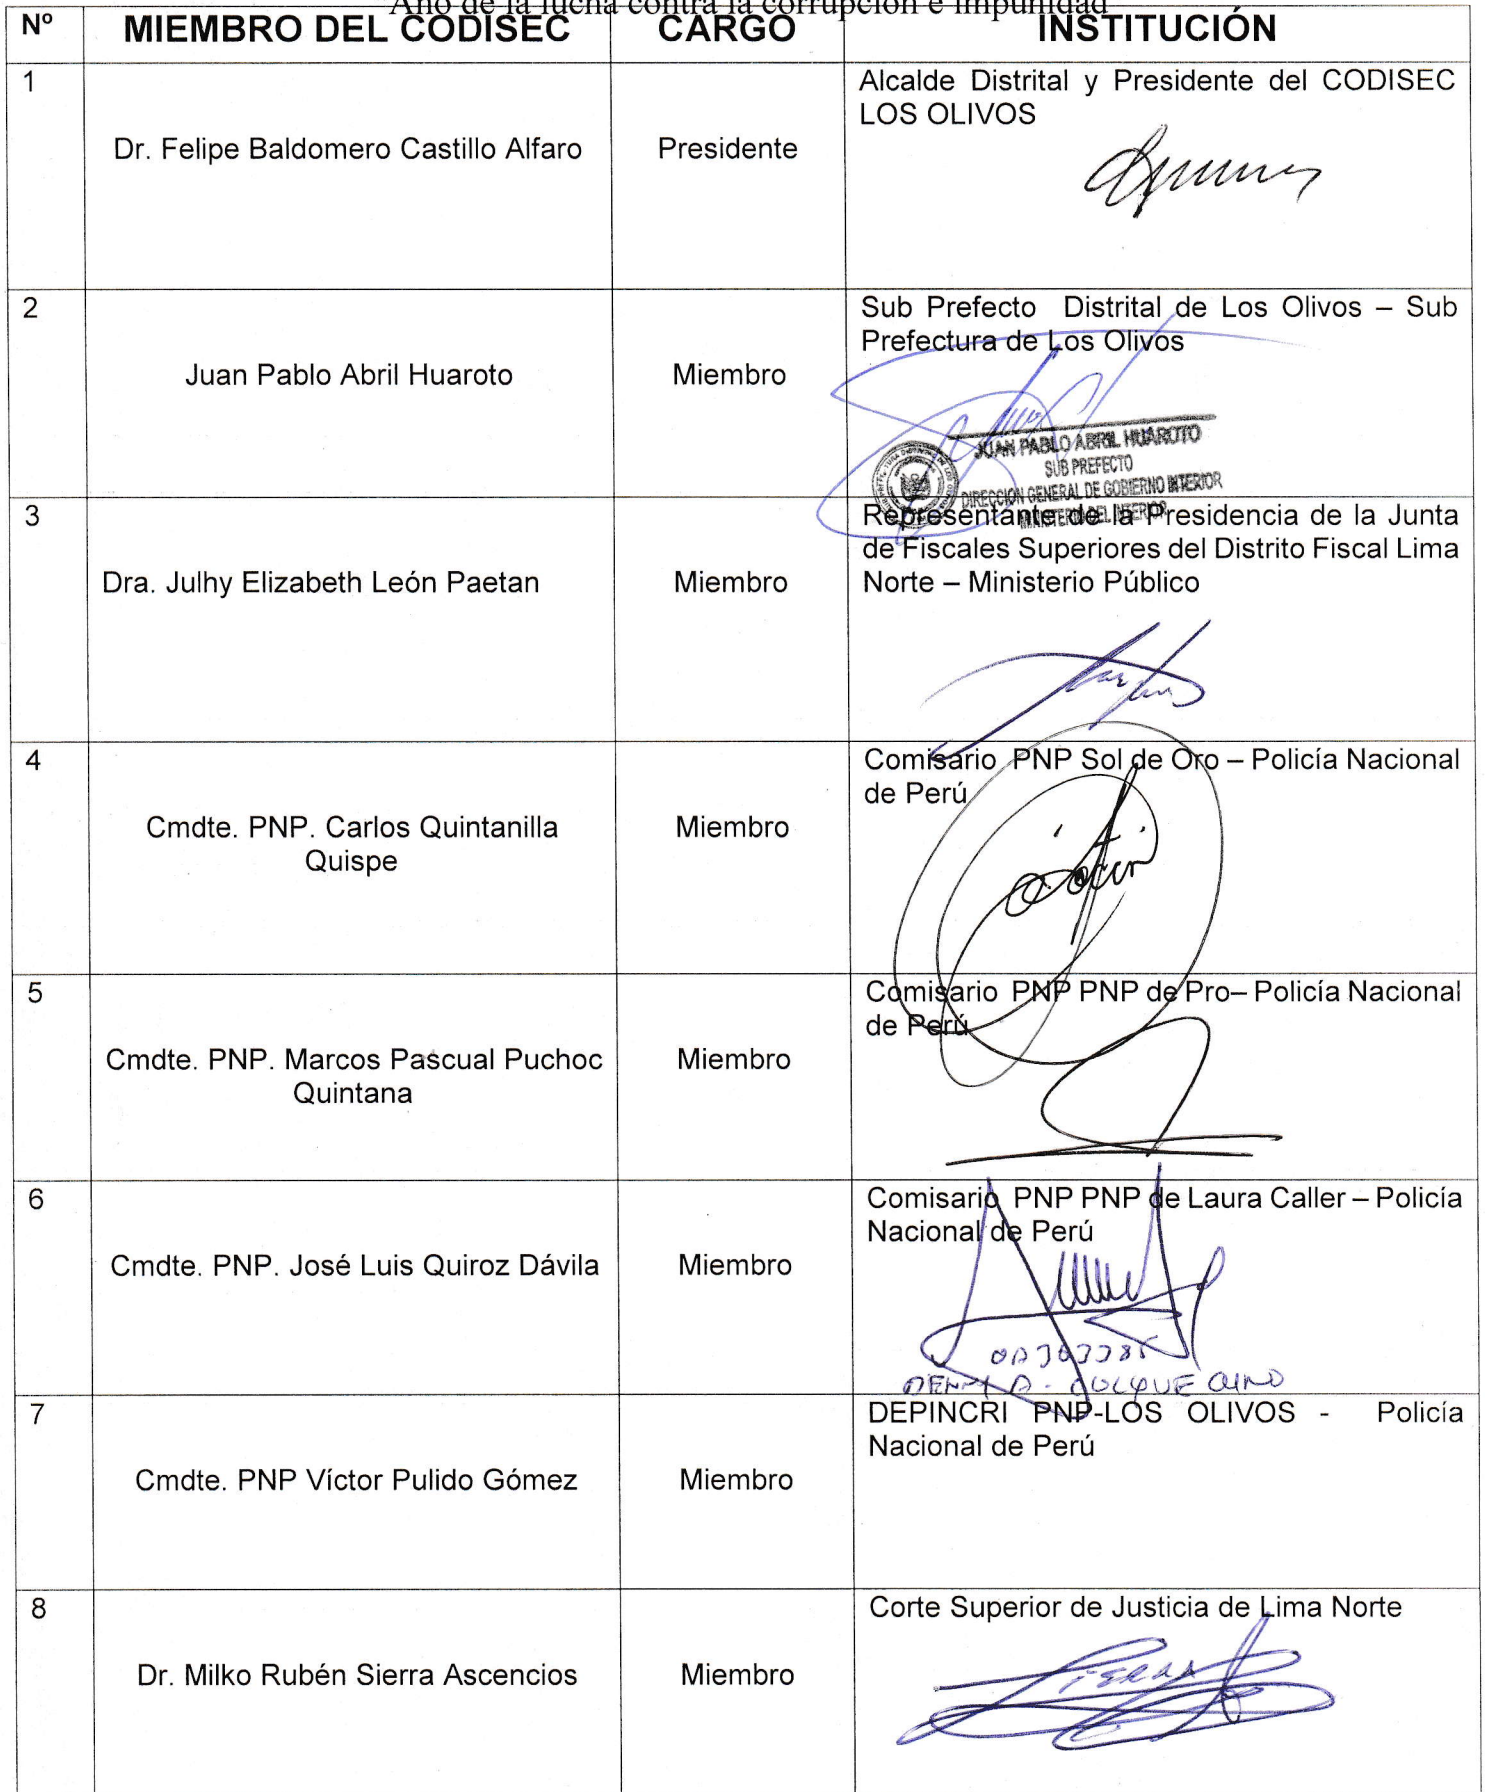 Año de la lucha contra la corrupción e impunidad
Nº MIEMBRO DEL CODISEC CARGO INSTITUCIÓN
1
Dr. Felipe Baldomero Castillo Alfaro
Presidente
Alcalde Distrital y Presidente del CODISEC
LOS OLIVOS
2
Juan Pablo Abril Huaroto
Miembro
Sub Prefecto Distrital de Los Olivos – Sub
Prefectura de Los Olivos
JUAN PABLO ABRIL HUAROTO
SUB PREFECTO
DIRECCION GENERAL DE GOBIERNO INTERIOR
MINISTERIO DEL INTERIOR
3
Dra. Julhy Elizabeth León Paetan
Miembro
Representante de la Presidencia de la Junta
de Fiscales Superiores del Distrito Fiscal Lima
Norte – Ministerio Público
4
Cmdte. PNP. Carlos Quintanilla
Quispe
Miembro
Comisario PNP Sol de Oro – Policía Nacional
de Perú
5
Cmdte. PNP. Marcos Pascual Puchoc
Quintana
Miembro
Comisario PNP PNP de Pro– Policía Nacional
de Perú
6
Cmdte. PNP. José Luis Quiroz Dávila
Miembro
Comisario PNP PNP de Laura Caller – Policía
Nacional de Perú
7
Cmdte. PNP Víctor Pulido Gómez
Miembro
DEPINCRI PNP-LOS OLIVOS - Policía
Nacional de Perú
8
Dr. Milko Rubén Sierra Ascencios
Miembro
Corte Superior de Justicia de Lima Norte